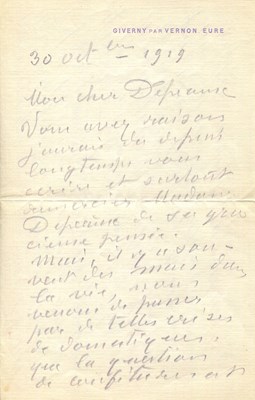 GIVERNY PAR VERNON. EURE
30 octbre - 1919
Mon cher Depeaux
Vous avez raison
j'aurais du depuis
longtemps vous
écrire et surtout
remercier Madame
Depeaux de sa gra
cieuse pensée.
Mais, il y a sou-
vent des mais dans
la vie, nous
venons de passer
par de telles crises
de domestiques,
que la question
de confitures est